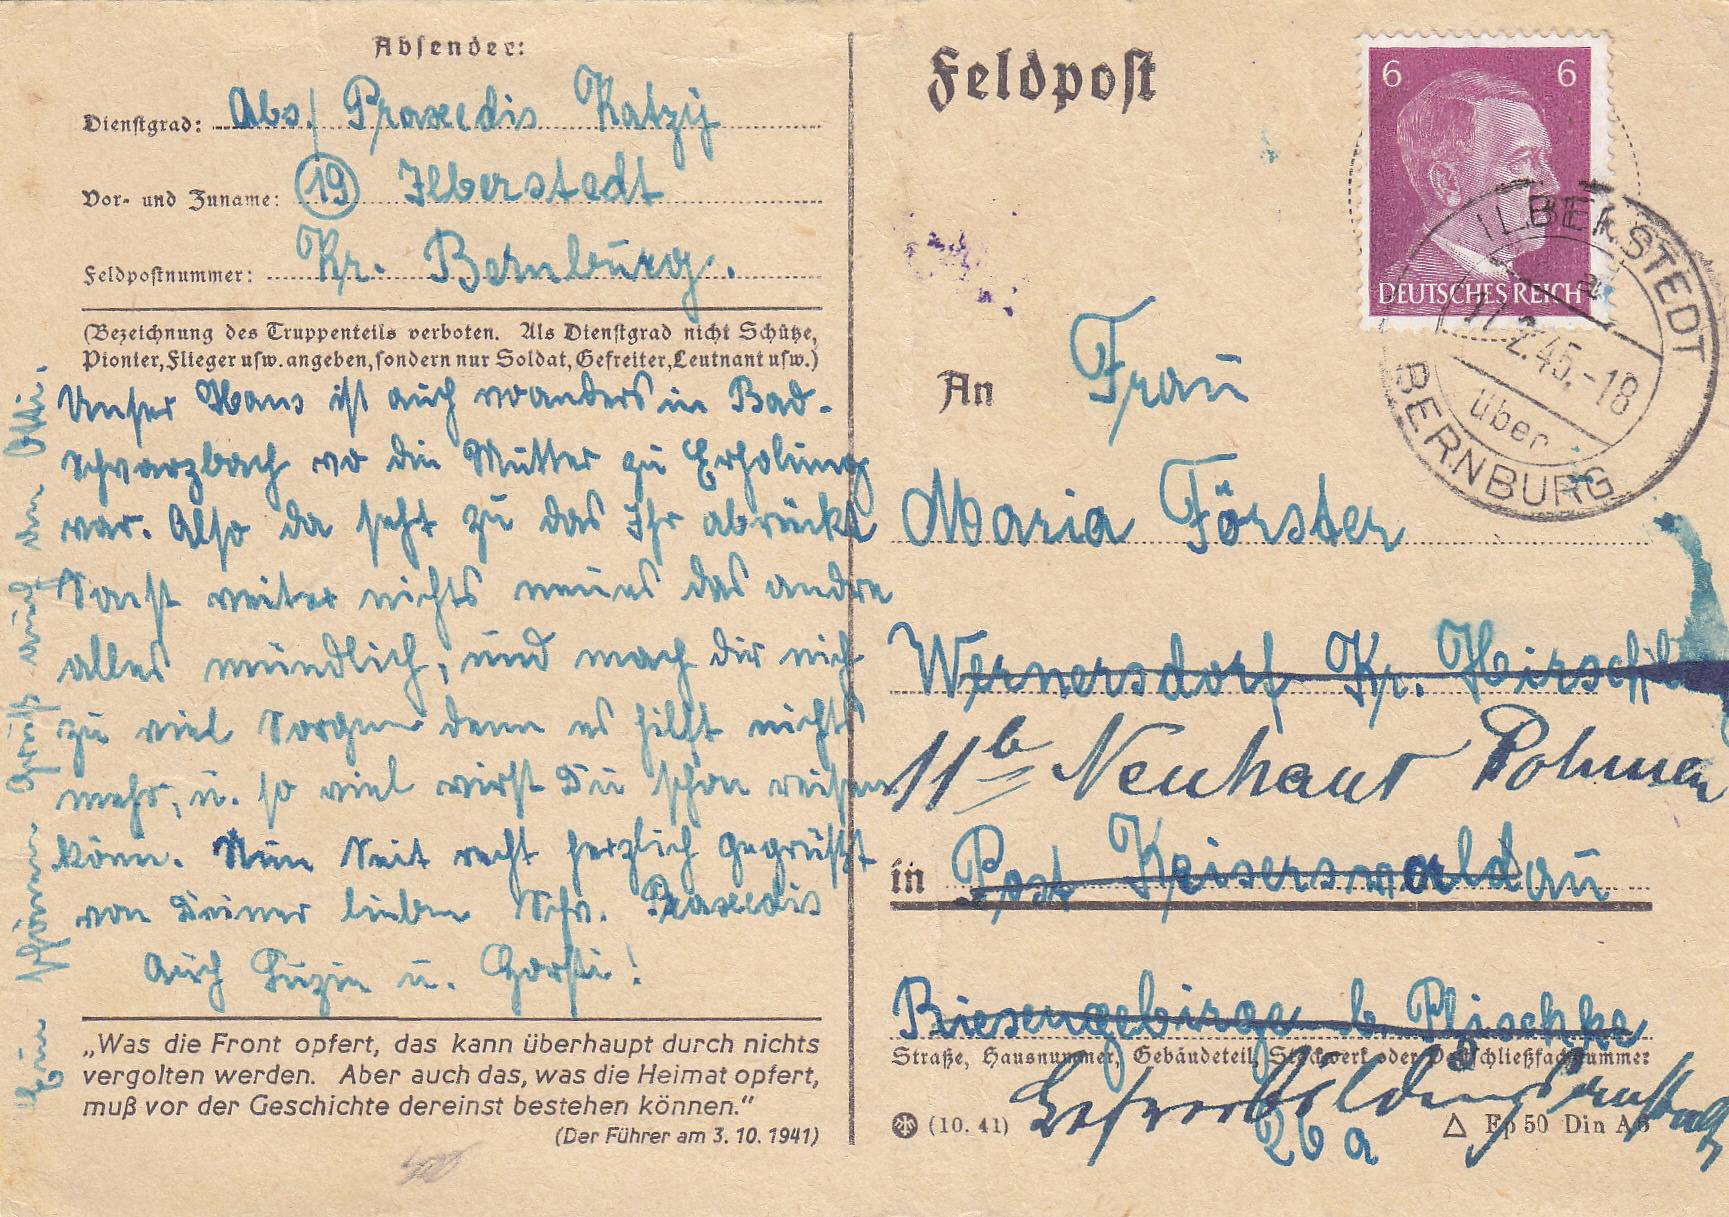 Absender:
Dienstgrad: Abs/ Praxedis Katzy
Vor- und Zuname: (19) Ilberstedt
Feldpostnummer: Kr. Bernburg.
(Bezeichnung des Truppenteils verboten. Als Dienstgrad nicht Schütze,
Pionier, Flieger usw. angeben, sondern nur Soldat, Gefreiter, Leutnant usw.)
Unser Hans ist auch woanders in Bad-
Schwarzbach wo die Mutter zu Erholung
war. Also da seht zu das Ihr abrückt
Sonst weiter nichts neues das andre
alles mündlich, und mach dir nich
zu viel Sorgen denn es hilft nichts
mehr, u. so viel wirst Du schon
könn. Nun Seit recht herzlich Gegrüßt
von Deiner lieben Schw. Praxedis
Auch Luzie u. Horsti!
Ein schönen Gruß und von Otti.
„Was die Front opfert, das kann überhaupt durch nichts
vergolten werden. Aber auch das, was die Heimat opfert,
muß vor der Geschichte dereinst bestehen können.“
(Der Führer am 3. 10. 1941)
Feldpost
6 6
DEUTSCHES REICH
ILBERSTEDT
a
17.2.45.-18
über
BERNBURG
An Frau
Maria Förster
Wernersdorf Kr.
11b Neuhaus
in Post Keiserswaldau
Riesengebirge b. Plischke
Straße, Hausnummer, Gebäudeteil, Stockwerk oder Postschließfachnummer
26a
(10. 41) Ep 50 Din A6